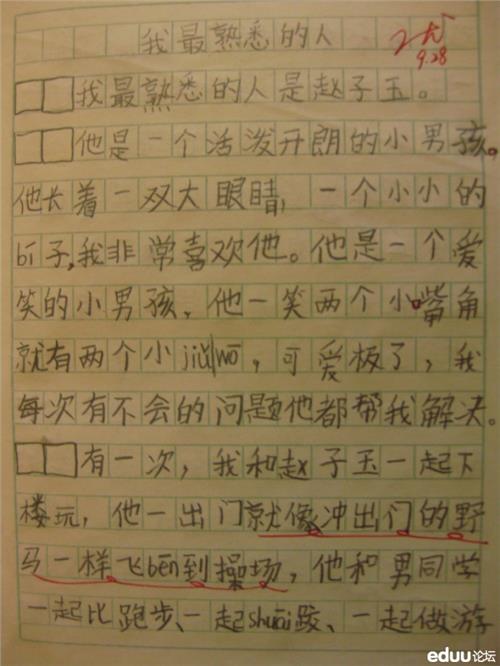 我最熟悉的人
9.28
我最熟悉的人是赵子玉。
他是一个活泼开朗的小男孩。
他长着一双大眼睛,一个小小的
bí子,我非常喜欢他。他是一个爱
笑的小男孩,他一笑两个小嘴角
就有两个小jiǔwō,可爱极了,我
每次有不会的问题他都帮我解决。
有一次,我和赵子玉一起下
楼玩,他一出门就像冲出门的野
马一样飞bēn到操场,他和男同学
一起比跑步、一起shuāi跤、一起做游
eduu论坛